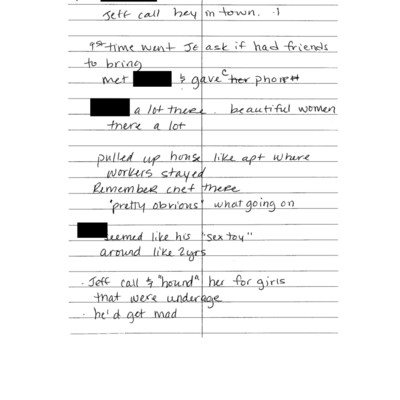 Jeff call hey in town.
1st time went JE ask if had friends
to bring
met & gave her phone #
a lot there. beautiful women
there a lot
pulled up house like apt where
workers stayed
Remember chef there
"pretty obvious" what going on
seemed like his "sex toy"
around like 2yrs
· Jeff call & "hound" her for girls
that were underage
· he'd get mad